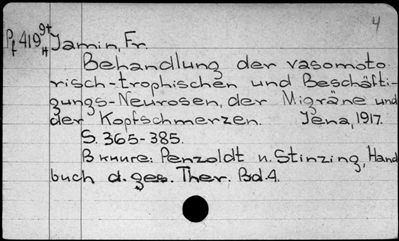 4
Pf 419 9t/н Jamin, Fr.
Behandlung der vasomoto-
risch-trophischen und Beschäfti-
gungs-Neurosen, der Migräne und
der Kopfschmerzen. Jena, 1917.
S. 365-385.
В книге: Penzoldt u. Stinzing, Hand
buch d. ges. Ther. Bd. 4.